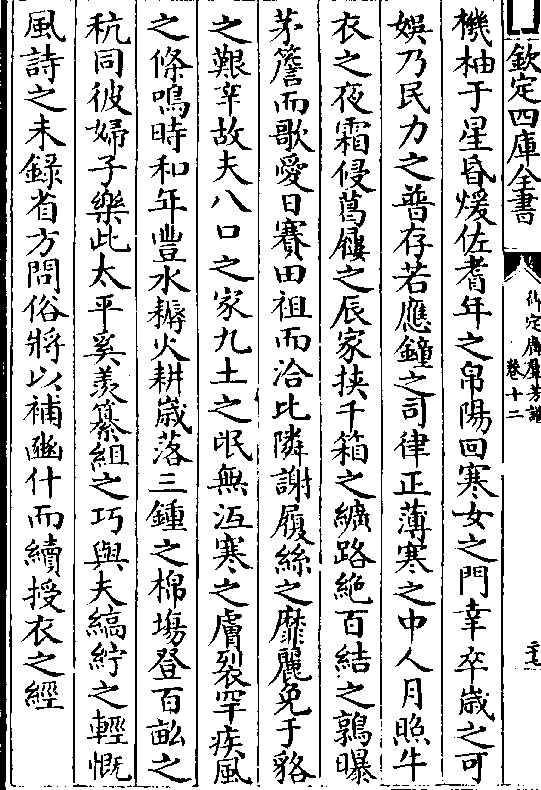 欽定四庫全書
御定廣羣芳譜
卷十二
機柚于星昏煖佐耆年之帛陽回寒女之門幸卒歲之可
娛乃民力之普存若應鐘之司律正薄寒之中人月照牛
衣之夜霜侵葛屨之辰家挾千箱之纊路絶百結之鶉曝
茅簷而歌愛日賽田祖而洽比隣謝履絲之靡麗免于貉
之艱辛故夫八口之家九土之氓無沍寒之膚裂罕疾風
之條鳴時和年豐水耨火耕歲落三鍾之棉塲登百畝之
秔同彼婦子樂此太平奚羨纂組之巧與夫縞紵之輕慨
風詩之未録省方問俗將以補豳什而續授衣之經